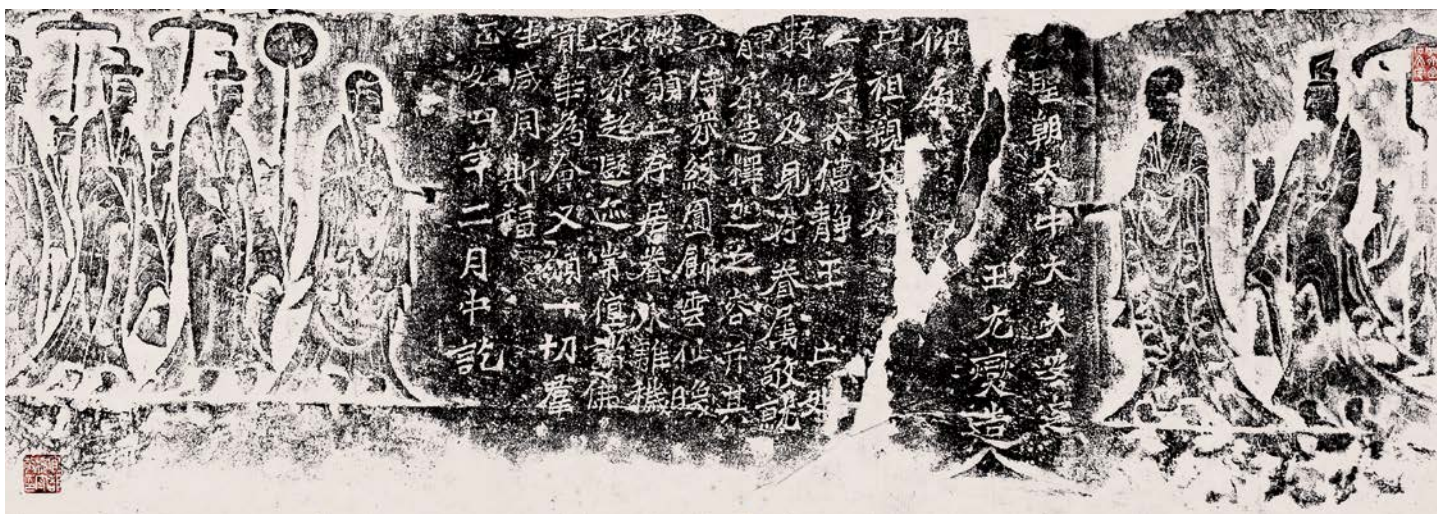 聖朝太中大夫安定
王元燮造
仰為
亡祖親太妃
亡考太傅靜王亡妣
蔣妃及見存眷屬敬就
靜窟造釋迦之容并其
立侍衆綵圓飾雲仙暎
然願亡存居眷永離穢
趣昇超遐迹常值諸佛
龍華為會又願一切羣
生咸同斯福
正始四年二月中訖